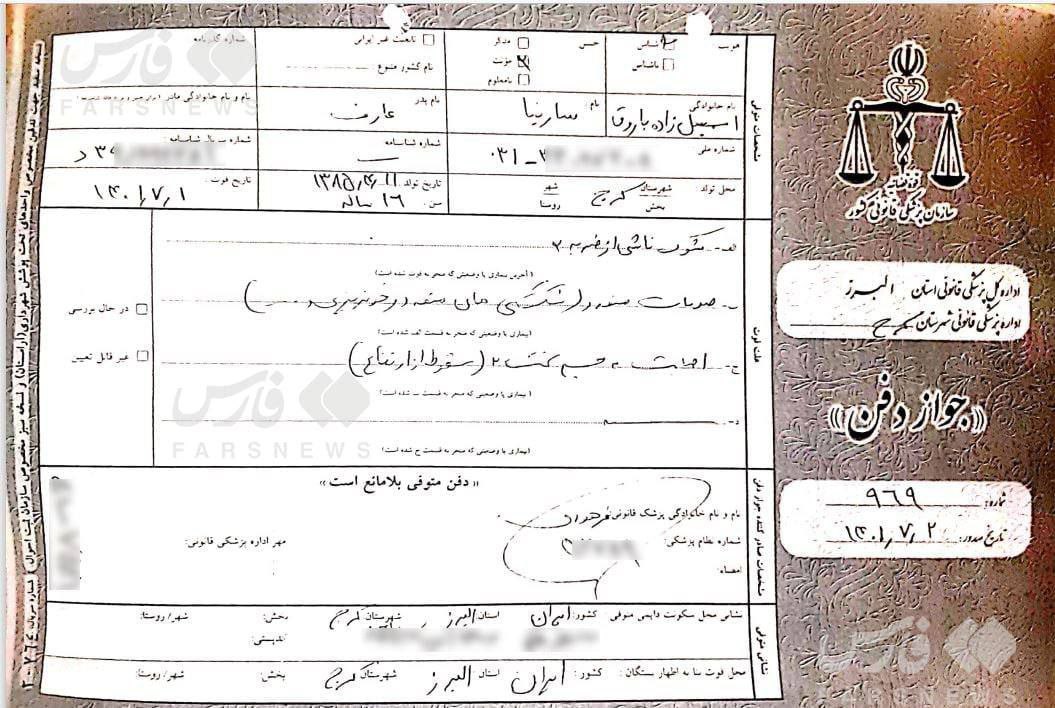 سازمان پزشکی قانونی کشور
اداره کل پزشکی قانونی استان البرز
اداره پزشکی قانونی شهرستان کرج
«جواز دفن»
شماره: ۹۶۹
تاریخ صدور: ۱۴۰۱/۷/۲
مشخصات متوفی
هویت شناس ناشناس
جنس مذکر مونث نامعلوم
تابعیت غیر ایرانی
نام کشور متبوع:
شماره گذرنامه
نام خانوادگی اسمعیل زاده باروق
نام: سارینا
نام پدر عارف
نام و نام خانوادگی مادر
شماره ملی: ۰۳۱-۳
شماره شناسنامه
شماره سریال شناسنامه
محل تولد: شهرستان کرج شهر
بخش روستا
تاریخ تولد ۱۳۸۵/۴/۱۱
سن: ۱۶ ساله
تاریخ فوت ۱۴۰۱/۷/۱
علت فوت
الف- شوک ناشی از ضربه
(آخرین بیماری یا وضعیتی که منجر به فوت شده است)
ب- صدمات متعدد (شکستگی های متعدد و خونریزی)
(بیماری یا وضعیتی که منجر به قسمت الف شده است)
ج- اصابت به جسم سخت (سقوط از ارتفاع)
(بیماری یا وضعیتی که منجر به قسمت ب شده است)
د-
(بیماری یا وضعیتی که منجر به قسمت ج شده است)
در حال بررسی
غیر قابل تعیین
مشخصات صادر کننده جواز دفن
«دفن متوفی بلامانع است»
نام و نام خانوادگی پزشک قانونی:
شماره نظام پزشکی:
امضاء:
مهر اداره پزشکی قانونی:
نشانی متوفی
نشانی محل سکونت دایمی متوفی کشور: ایران استان البرز شهرستان کرج بخش: شهر/روستا:
کدپستی:
محل فوت بنا به اظهار بستگان: کشور: ایران استان البرز شهرستان کرج بخش: شهر/روستا:
فارس
FARSNEWS
فارس
FARSNEWS
فارس
FARSNEWS